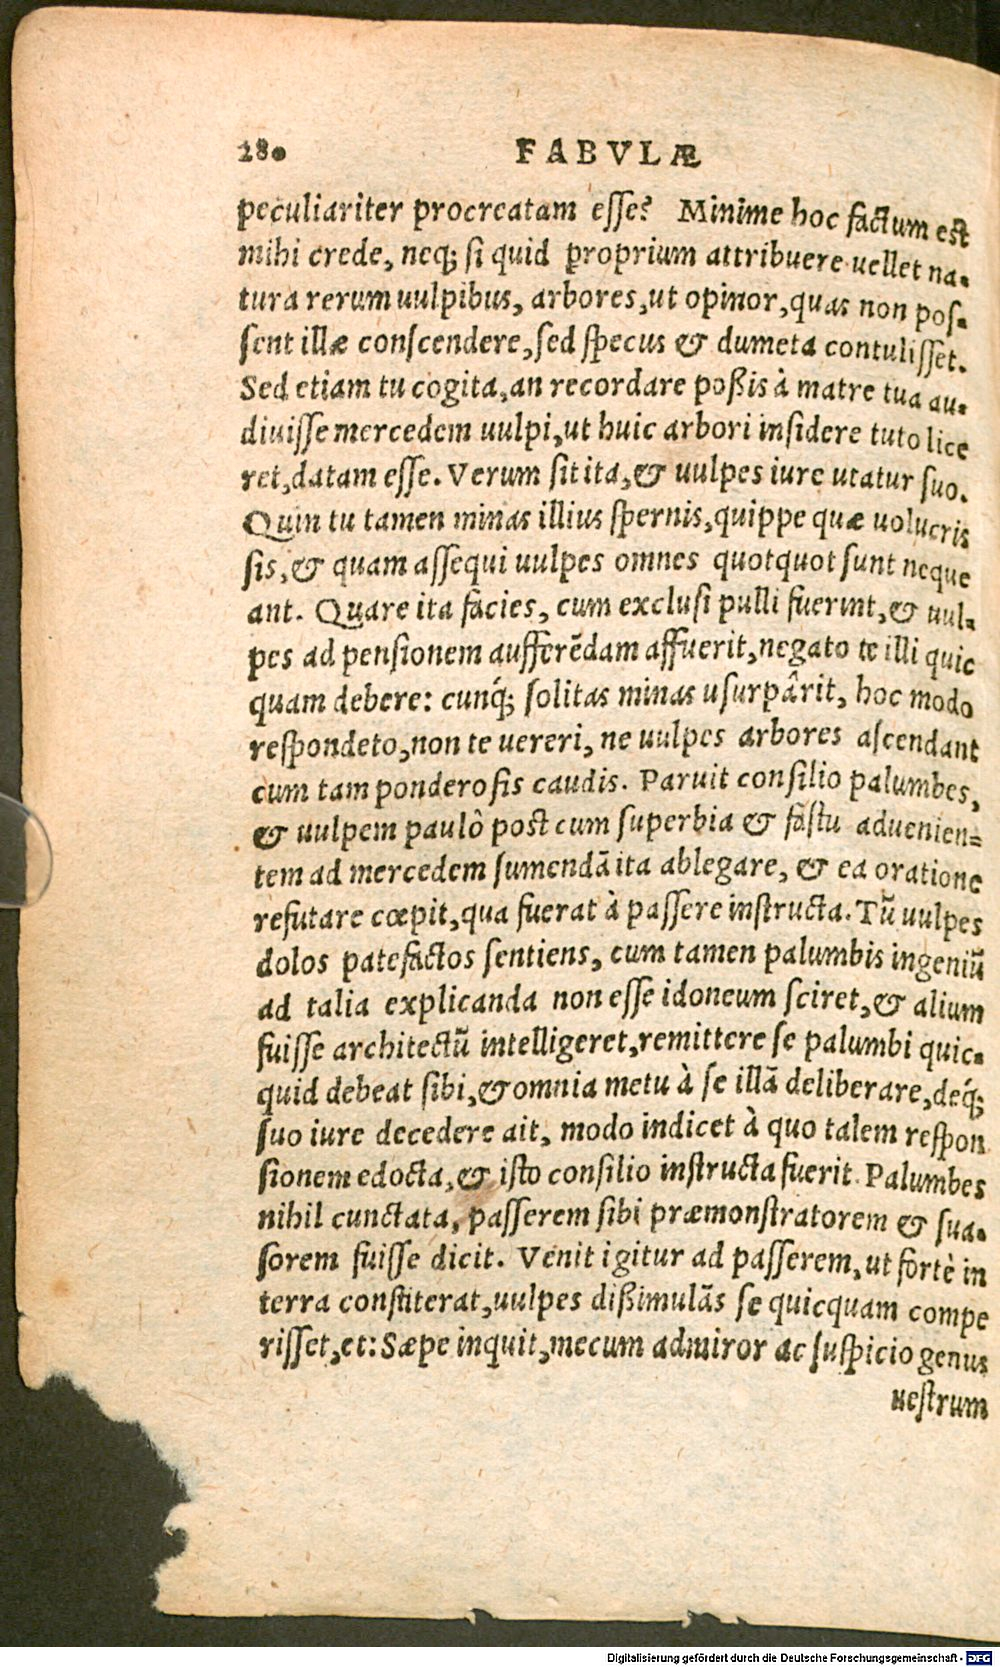 280 FABVLÆ
peculiariter procreatam esse? Minime hoc factum est
mihi crede, neq; si quid proprium attribuere uellet na-
tura rerum uulpibus, arbores, ut opinor, quas non pos-
sent illæ conscendere, sed specus & dumeta contulisset.
Sed etiam tu cogita, an recordare poßis à matre tua au-
diuisse mercedem uulpi, ut huic arbori insidere tuto lice
ret, datam esse. Verum sit ita, & uulpes iure utatur suo.
Quin tu tamen minas illius spernis, quippe quæ uolucris
sis, & quam assequi uulpes omnes quotquot sunt neque
ant. Quare ita facies, cum exclusi pulli fuerint, & uul-
pes ad pensionem aufferēdam affuerit, negato te illi quic
quam debere: cunq́; solitas minas usurpârit, hoc modo
respondeto, non te uereri, ne uulpes arbores ascendant
cum tam ponderosis caudis. Paruit consilio palumbes,
& uulpem paulò post cum superbia & fastu aduenien=
tem ad mercedem sumendā ita ablegare, & ea oratione
refutare cœpit, qua fuerat à passere instructa. Tū uulpes
dolos patefactos sentiens, cum tamen palumbis ingeniū
ad talia explicanda non esse idoneum sciret, & alium
fuisse architectū intelligeret, remittere se palumbi quic-
quid debeat sibi, & omnia metu à se illā deliberare, deq́;
suo iure decedere ait, modo indicet à quo talem respon
sionem edocta, & isto consilio instructa fuerit. Palumbes
nihil cunctata, passerem sibi præmonstratorem & sua-
sorem fuisse dicit. Venit igitur ad passerem, ut fortè in
terra constiterat, uulpes dißimulās se quicquam compe
risset, et: Sæpe inquit, mecum admiror ac suspicio genus
uestrum
Digitalisierung gefördert durch die Deutsche Forschungsgemeinschaft - DFG